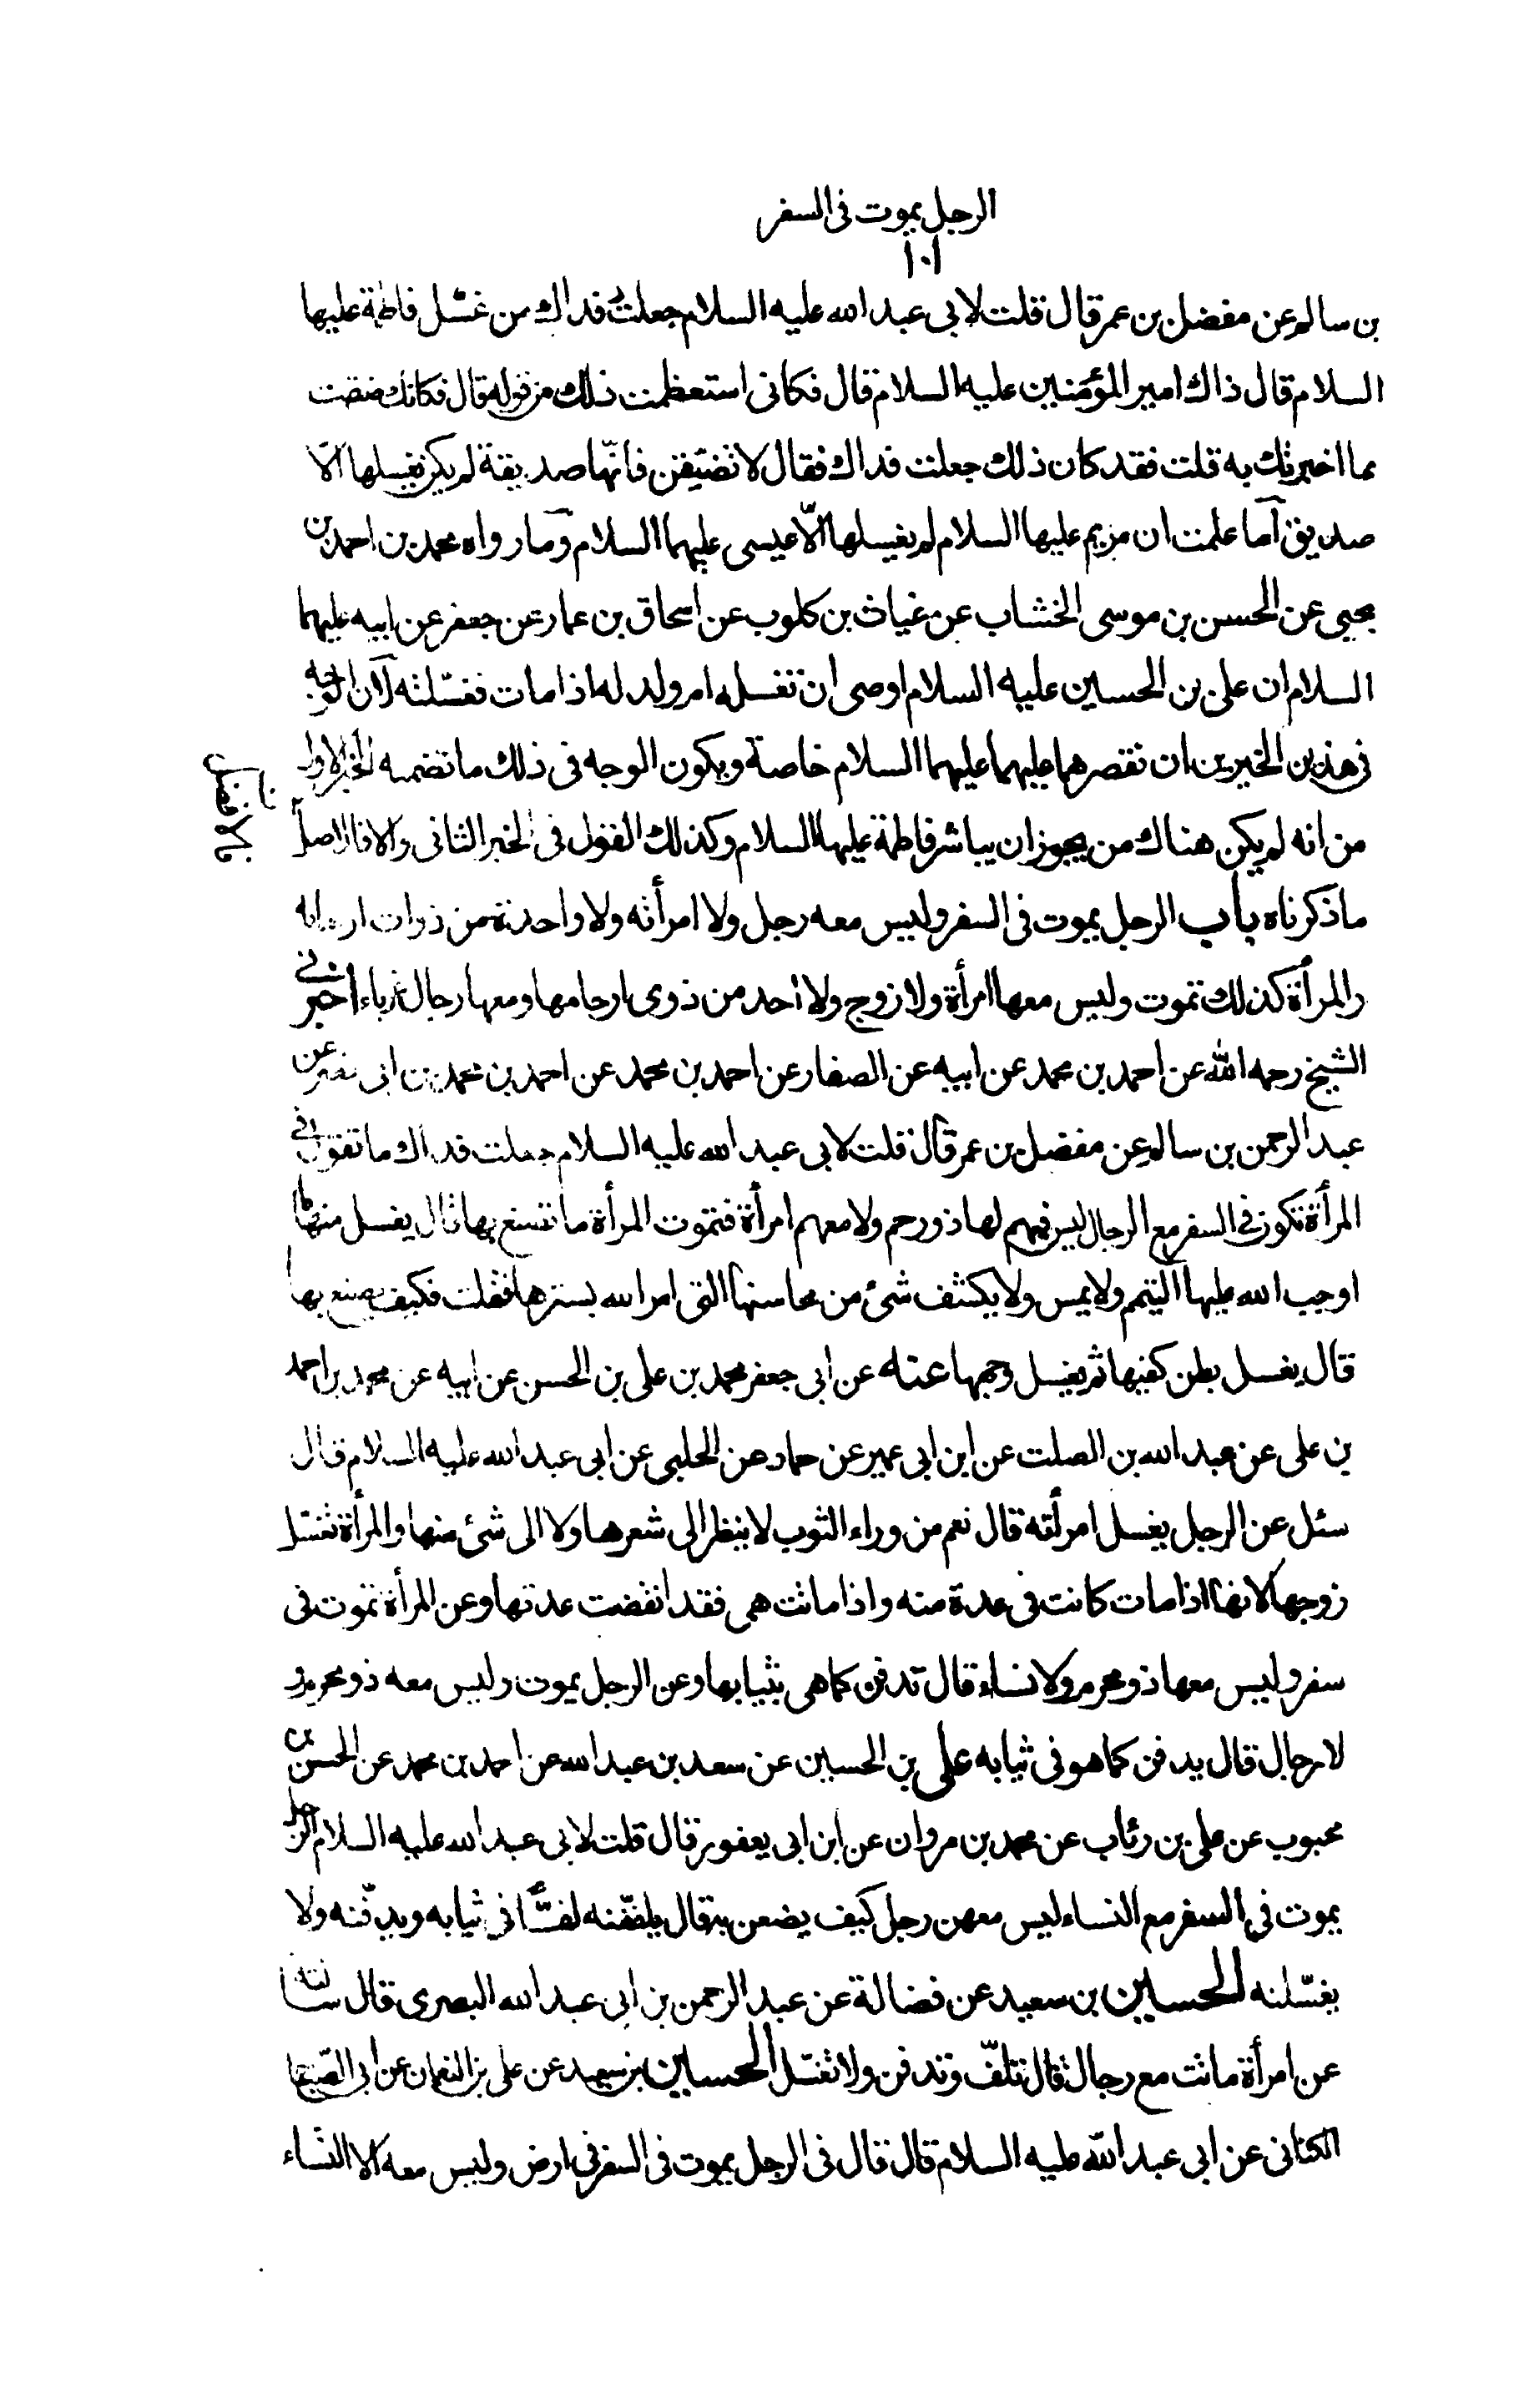 الرجل يموت فى السفر
١٠١
بن سالم عن مفضل بن عمر قال قلت لابى عبد الله عليه السلام جعلت فداك من غسّل فاطمة عليها
السلام قال ذاك امير المؤمنين عليه السلام قال فكانى استعظمت ذلك من قوله قال فكانك ضقت
مما اخبرتك به قلت فقد كان ذلك جعلت فداك فقال لا تضيقن فانّها صديقة لم يكن يغسلها الّا
صديق آما علمت ان مريم عليها السلام لم يغسلها الّا عيسى عليهما السلام وما رواه محمد بن احمد بن
يحيى عن الحسن بن موسى الخشاب عن غياث بن كلوب عن اسحاق بن عمار عن جعفر عن ابيه عليهما
السلام ان على بن الحسين عليه السلام اوصى ان تغسله ام ولد له اذا مات فغسّلته لآن الوجه
فى هذين الخبرين ان نقصرهما عليهما عليهما السلام خاصة ويكون الوجه فى ذلك ما تضمنه الخبر الاول
من انه لم يكن هناك من يجوز ان يباشر فاطمة عليها السلام وكذلك القول فى الخبر الثانى والا فالاصل
ما ذكرناه باب الرجل يموت فى السفر وليس معه رجل ولا امرأته ولا واحدة من ذوات ارحامه
والمرأة كذلك تموت وليس معها امرأة ولا زوج ولا احد من ذوى ارحامها ومعها رجال غرباء اخبرنى
الشيخ رحمه الله عن احمد بن محمد عن ابيه عن الصفار عن احمد بن محمد عن احمد بن محمد بن ابى نصر عن
عبد الرحمن بن سالم عن مفضل بن عمر قال قلت لابى عبد الله عليه السلام جعلت فداك ما تقول فى
المرأة تكون فى السفر مع الرجال ليس فيهم لها ذو رحم ولا معهم امرأة فتموت المرأة ما تصنع بها قال يغسل منها ما
اوجب الله عليها التيمم ولا يمس ولا يكشف شئ من محاسنها التى امر الله بسترها فقلت فكيف يصنع بها
قال يغسل بطن كفيها ثم يغسل وجهها عنه عن ابى جعفر محمد بن على بن الحسن عن ابيه عن محمد بن احمد
بن على عن عبد الله بن الصلت عن ابن ابى عمير عن حماد عن الحلبى عن ابى عبد الله عليه السلام قال
سئل عن الرجل يغسل امرأته قال نعم من وراء الثوب لا ينظر الى شعرها ولا الى شئ منها والمرأة تغسّل
زوجها لانها اذا مات كانت فى عدة منه واذا ماتت هى فقد انقضت عدتها وعن المرأة تموت فى
سفر وليس معها ذو محرم ولا نساء قال تدفن كما هى بثيابها وعن الرجل يموت وليس معه ذو محرم و
لا رجال قال يدفن كما هو فى ثيابه على بن الحسين عن سعد بن عبد الله عن احمد بن محمد عن الحسن بن
محبوب عن على بن رئاب عن محمد بن مروان عن ابن ابى يعفور قال قلت لابى عبد الله عليه السلام الرجل
يموت فى السفر مع النساء ليس معهن رجل كيف يصنعن به قال يلففنه لفّاً فى ثيابه ويدفنّه ولا
يغسّلنه الحسين بن سعيد عن فضالة عن عبد الرحمن بن ابى عبد الله البصرى قال سألته
عن امرأة ماتت مع رجال قال تلفّ وتدفن ولا تغسّل الحسين بن سعيد عن على بن النعمان عن ابى الصباح
الكنانى عن ابى عبد الله عليه السلام قال قال فى الرجل يموت فى السفر فى ارض وليس معه الا النساء